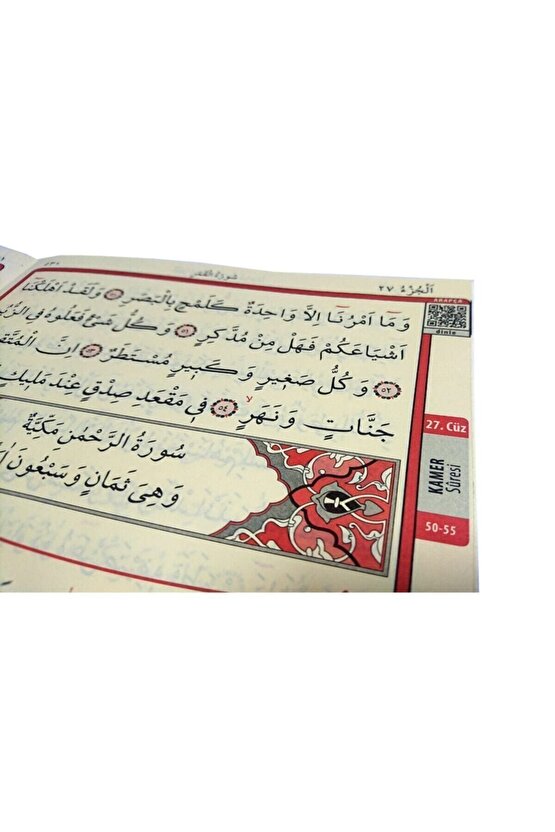 اَلْجُزْءُ ٢٧
سُورَةُ الْقَمَرِ
٥٣٠
وَمَٓا اَمْرُنَٓا اِلَّا وَاحِدَةٌ كَلَمْحٍ بِالْبَصَرِ ٥٠ وَلَقَدْ اَهْلَكْنَٓا
اَشْيَاعَكُمْ فَهَلْ مِنْ مُدَّكِرٍ ٥١ وَكُلُّ شَيْءٍ فَعَلُوهُ فِي
٥٢ وَكُلُّ صَغِيرٍ وَكَبِيرٍ مُسْتَطَرٌ ٥٣ اِنَّ
جَنَّاتٍ وَنَهَرٍ ٥٤ فِي مَقْعَدِ صِدْقٍ عِنْدَ مَلِيكٍ
سُورَةُ الرَّحْمٰنِ مَكِّيَّةٌ
وَهِيَ ثَمَانٍ وَسَبْعُونَ
ARAPÇA
dinle
27. Cüz
KAMER
Sûresi
50-55